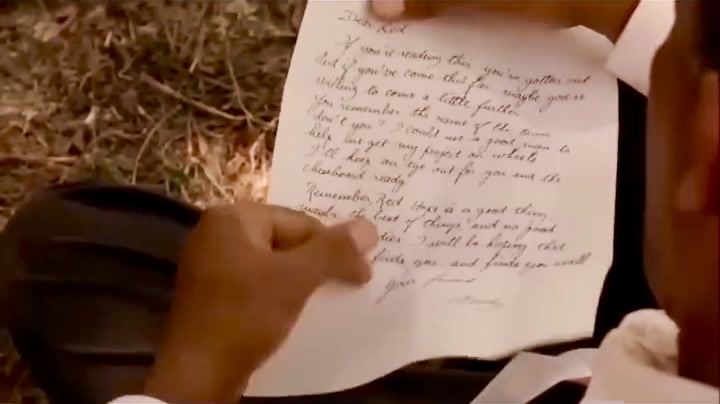 Dear Red
If you're reading this you've gotten out
And if you've come this far maybe you're
willing to come a little further
You remember the name of the town
don't you? I could use a good man to
help me get my project on wheels
I'll keep an eye out for you and the
chessboard ready.
Remember, Red Hope is a good thing,
maybe the best of things and no good
dies. I will be hoping that
finds you, and finds you well
Your friend